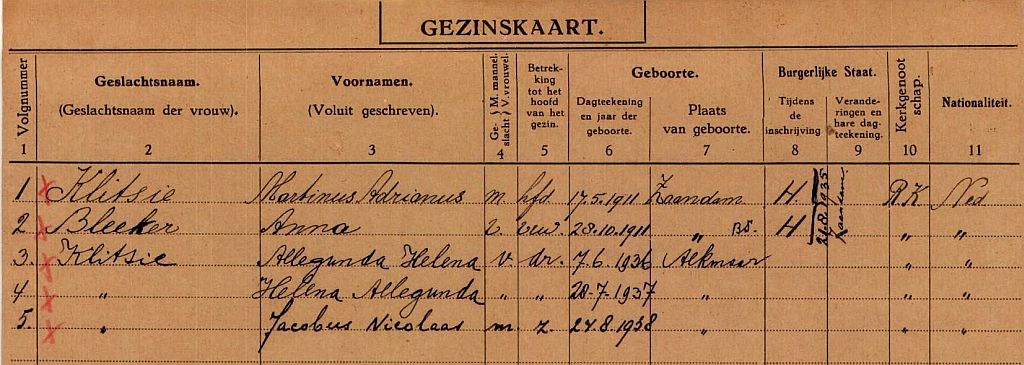 GEZINSKAART.
Volgnummer Geslachtsnaam. (Geslachtsnaam der vrouw). Voornamen. (Voluit geschreven). Ge- slacht M. mannel. V. vrouwel. Betrek- king tot het hoofd van het gezin. Geboorte. Dagteekening en jaar der geboorte. Plaats van geboorte. Burgerlijke Staat. Tijdens de inschrijving Verande- ringen en hare dag- teekening. Kerkgenoot schap. Nationaliteit.
1 2 3 4 5 6 7 8 9 10 11
1 x Klitsie Martinus Adrianus m. hfd. 17.5.1911 Zaandam H. R.K Ned
2 x Bleeker Anna v. vrw. 28.10.1911 „ H „ „
3. x Klitsie Allegunda Helena v. dr. 7.6.1936 Alkmaar „ „
4 x „ Helena Allegunda „ „ 28-7-1937 „ „ „
5. x „ Jacobus Nicolaas m. z. 27.8.1938 „ „ „